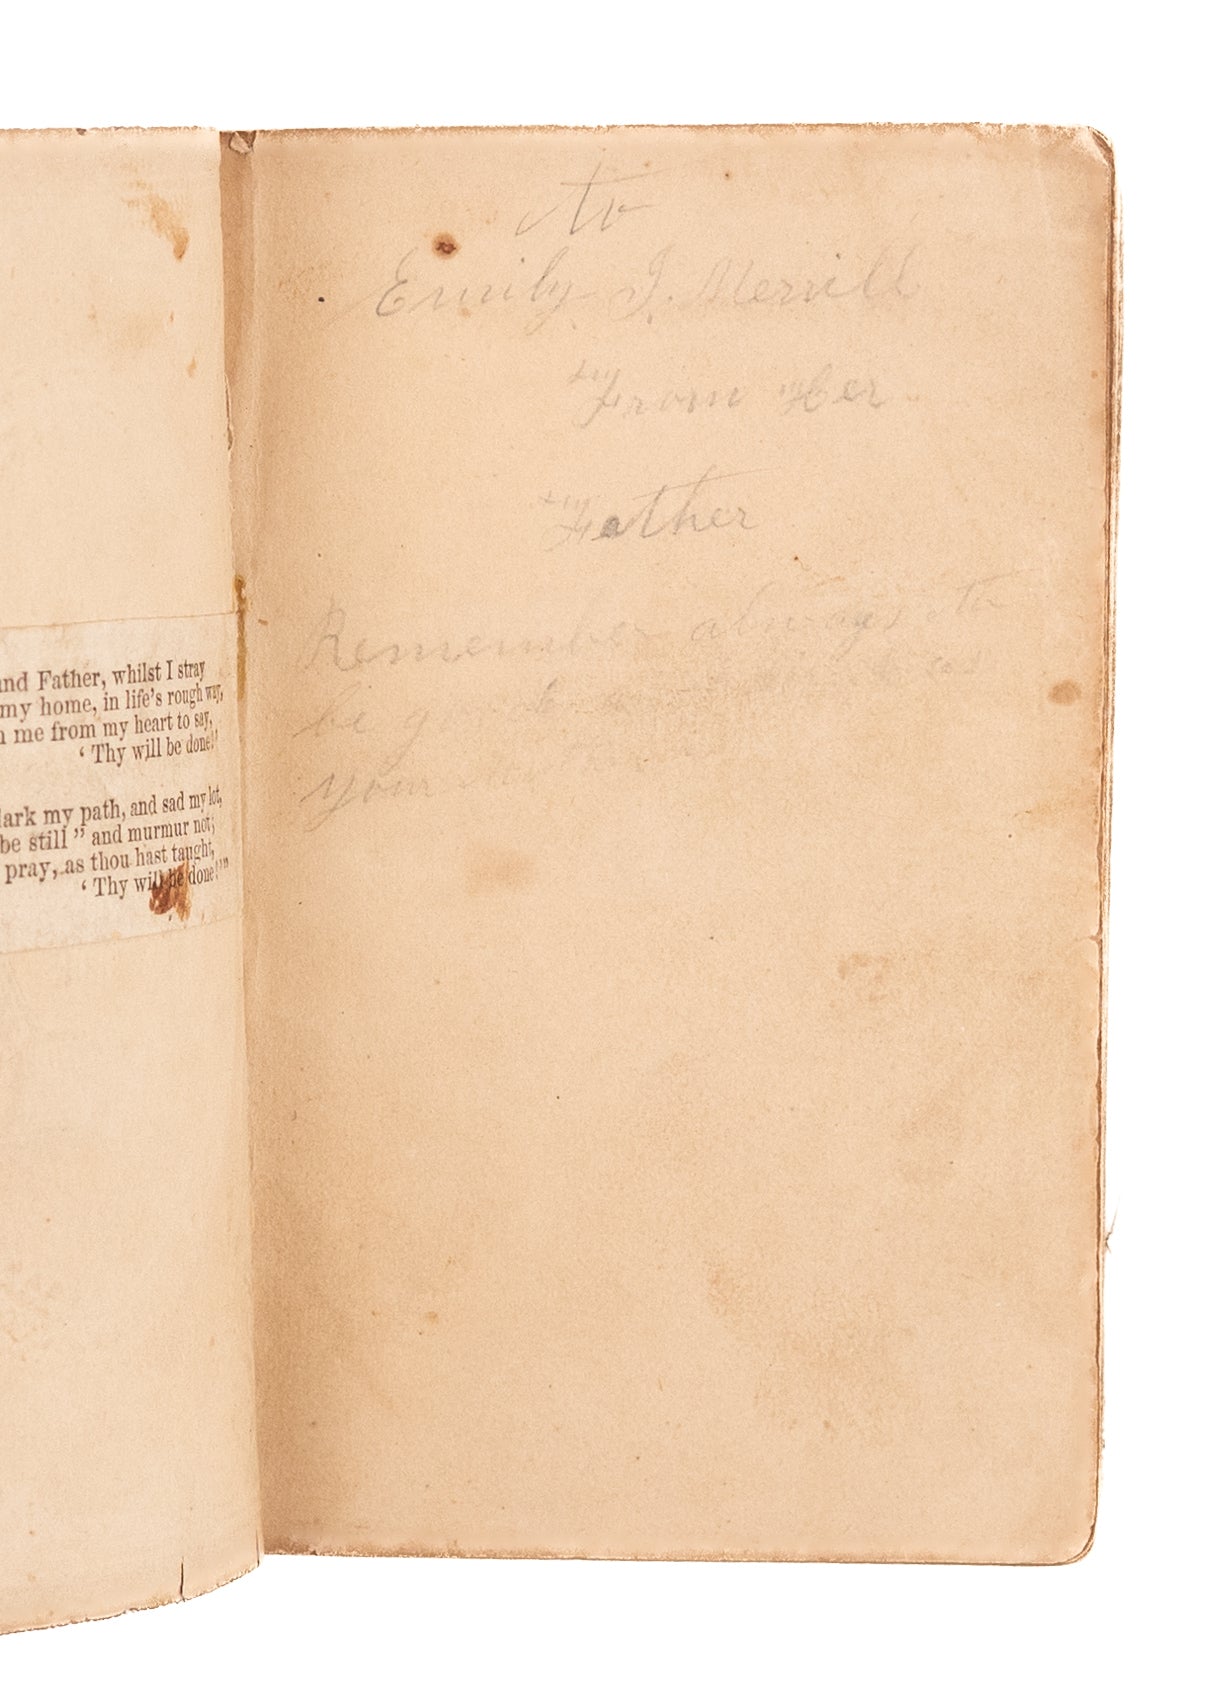 and Father, whilst I stray
my home, in life's rough way,
me from my heart to say,
‘ Thy will be done!’
dark my path, and sad my lot,
be still ” and murmur not;
pray, as thou hast taught,
‘ Thy will be done!’ ”
to
Emily J. Merrill
From Her
Father
Remember always to
be as
your